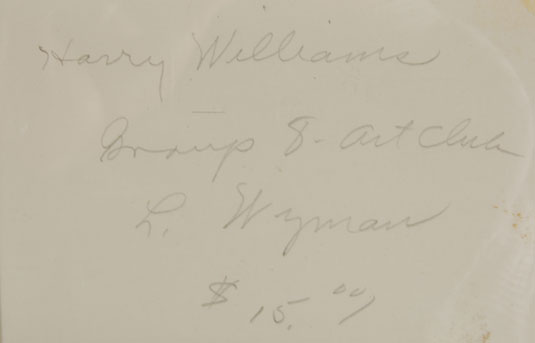 Harry Williams
Group 8 - Art Club
L. Wyman
$15.00